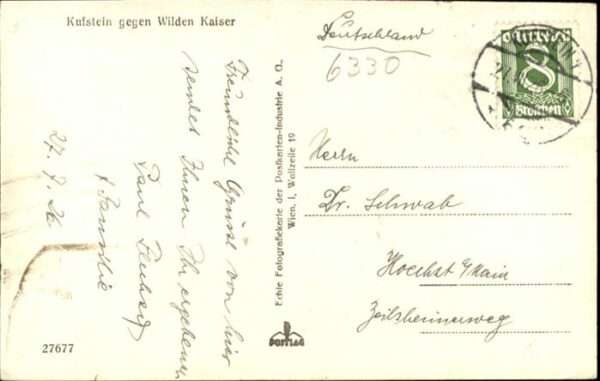 Kufstein gegen Wilden Kaiser
Deutschland
6330
8
Groschen
Freundliche Grüsse von hier
sendet Ihnen Ihr ergebener
Paul
27.
27677
Echte Fotografiekarte der Postkarten-Industrie A. G.
Wien, I, Wollzeile 19
POSTIAG
Herrn
Dr. Schwab
Hoechst a/Main
Zeilsheimerweg